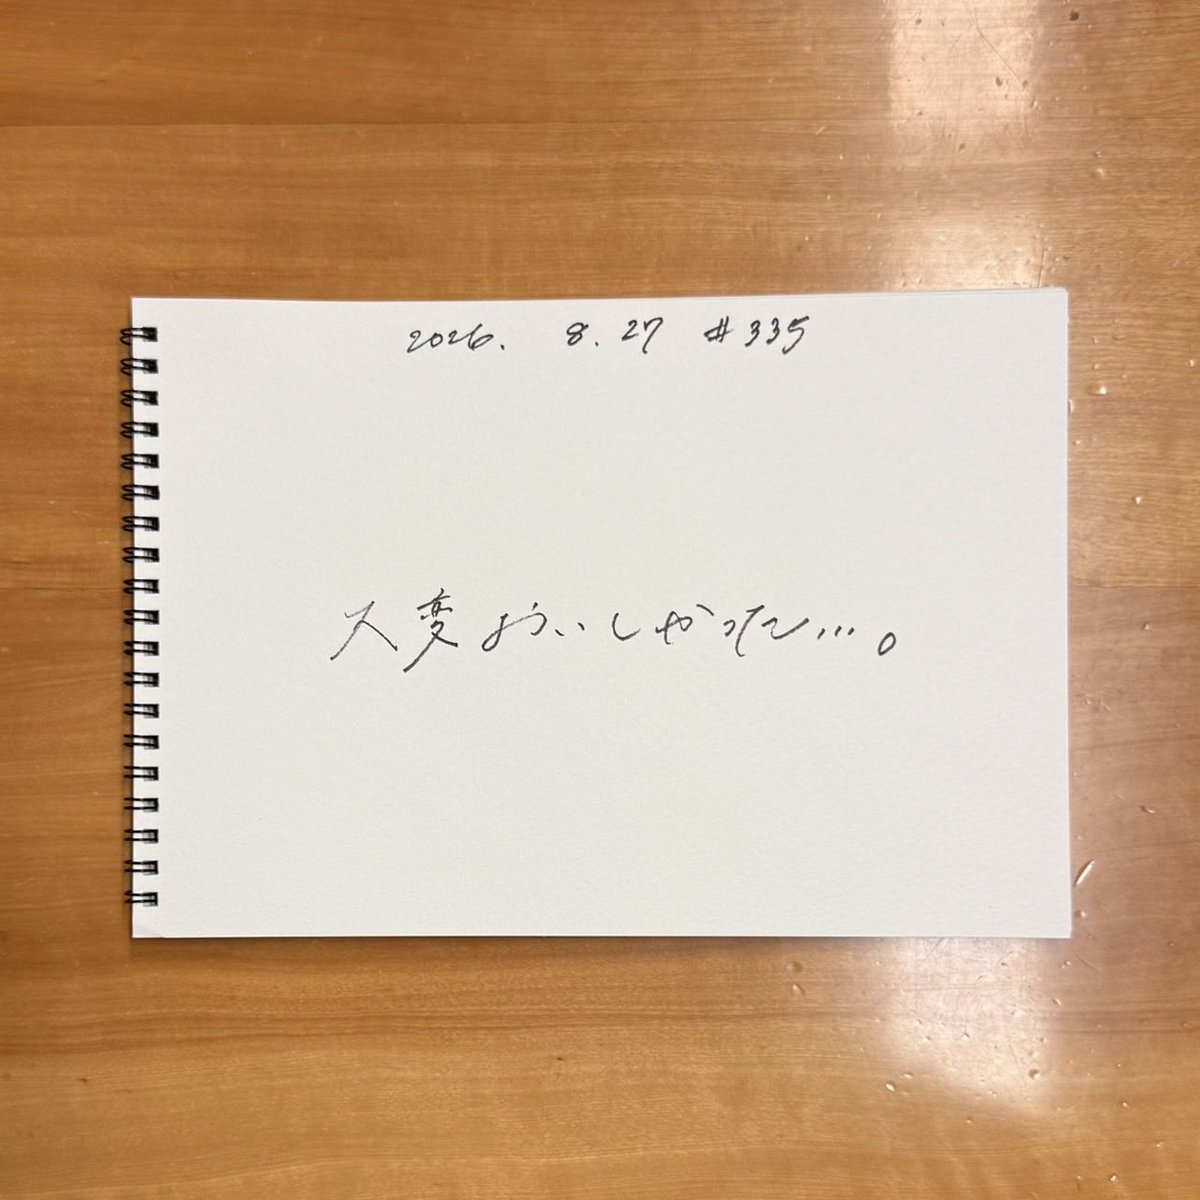 2026. 8. 27 #335
大変おいしかった…。